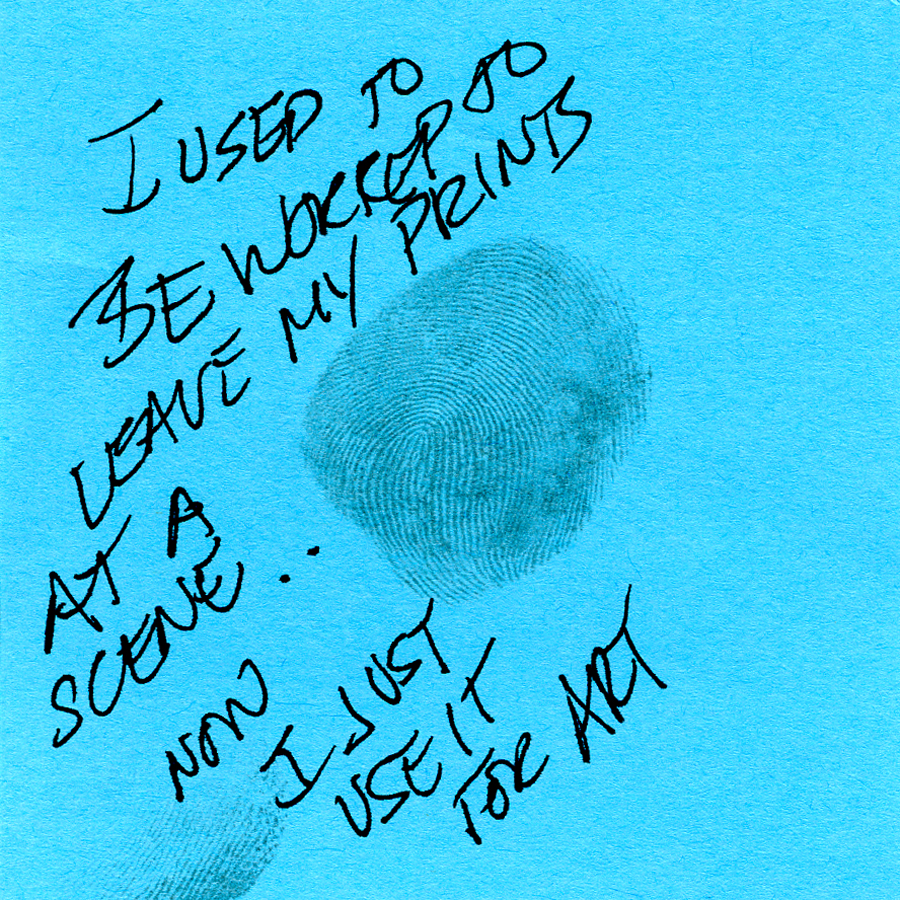 I USED TO
BE WORRED TO
LEAVE MY PRINTS
AT A
SCENE..
NOW
I JUST
USE IT
FOR ART